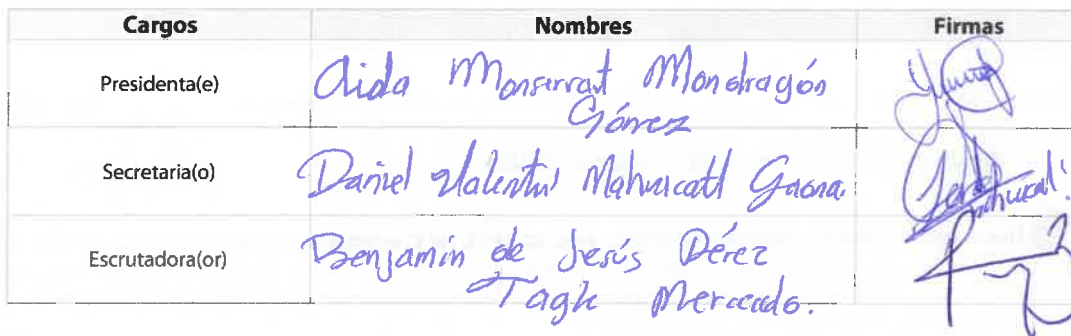 Cargos Nombres Firmas
Presidenta(e) Aida Monserrat Mondragón
Gómez
Secretaria(o) Daniel Valentin Mahuicatl Gaona
Escrutadora(or) Benjamín de Jesús Pérez
Tagle Mercado.